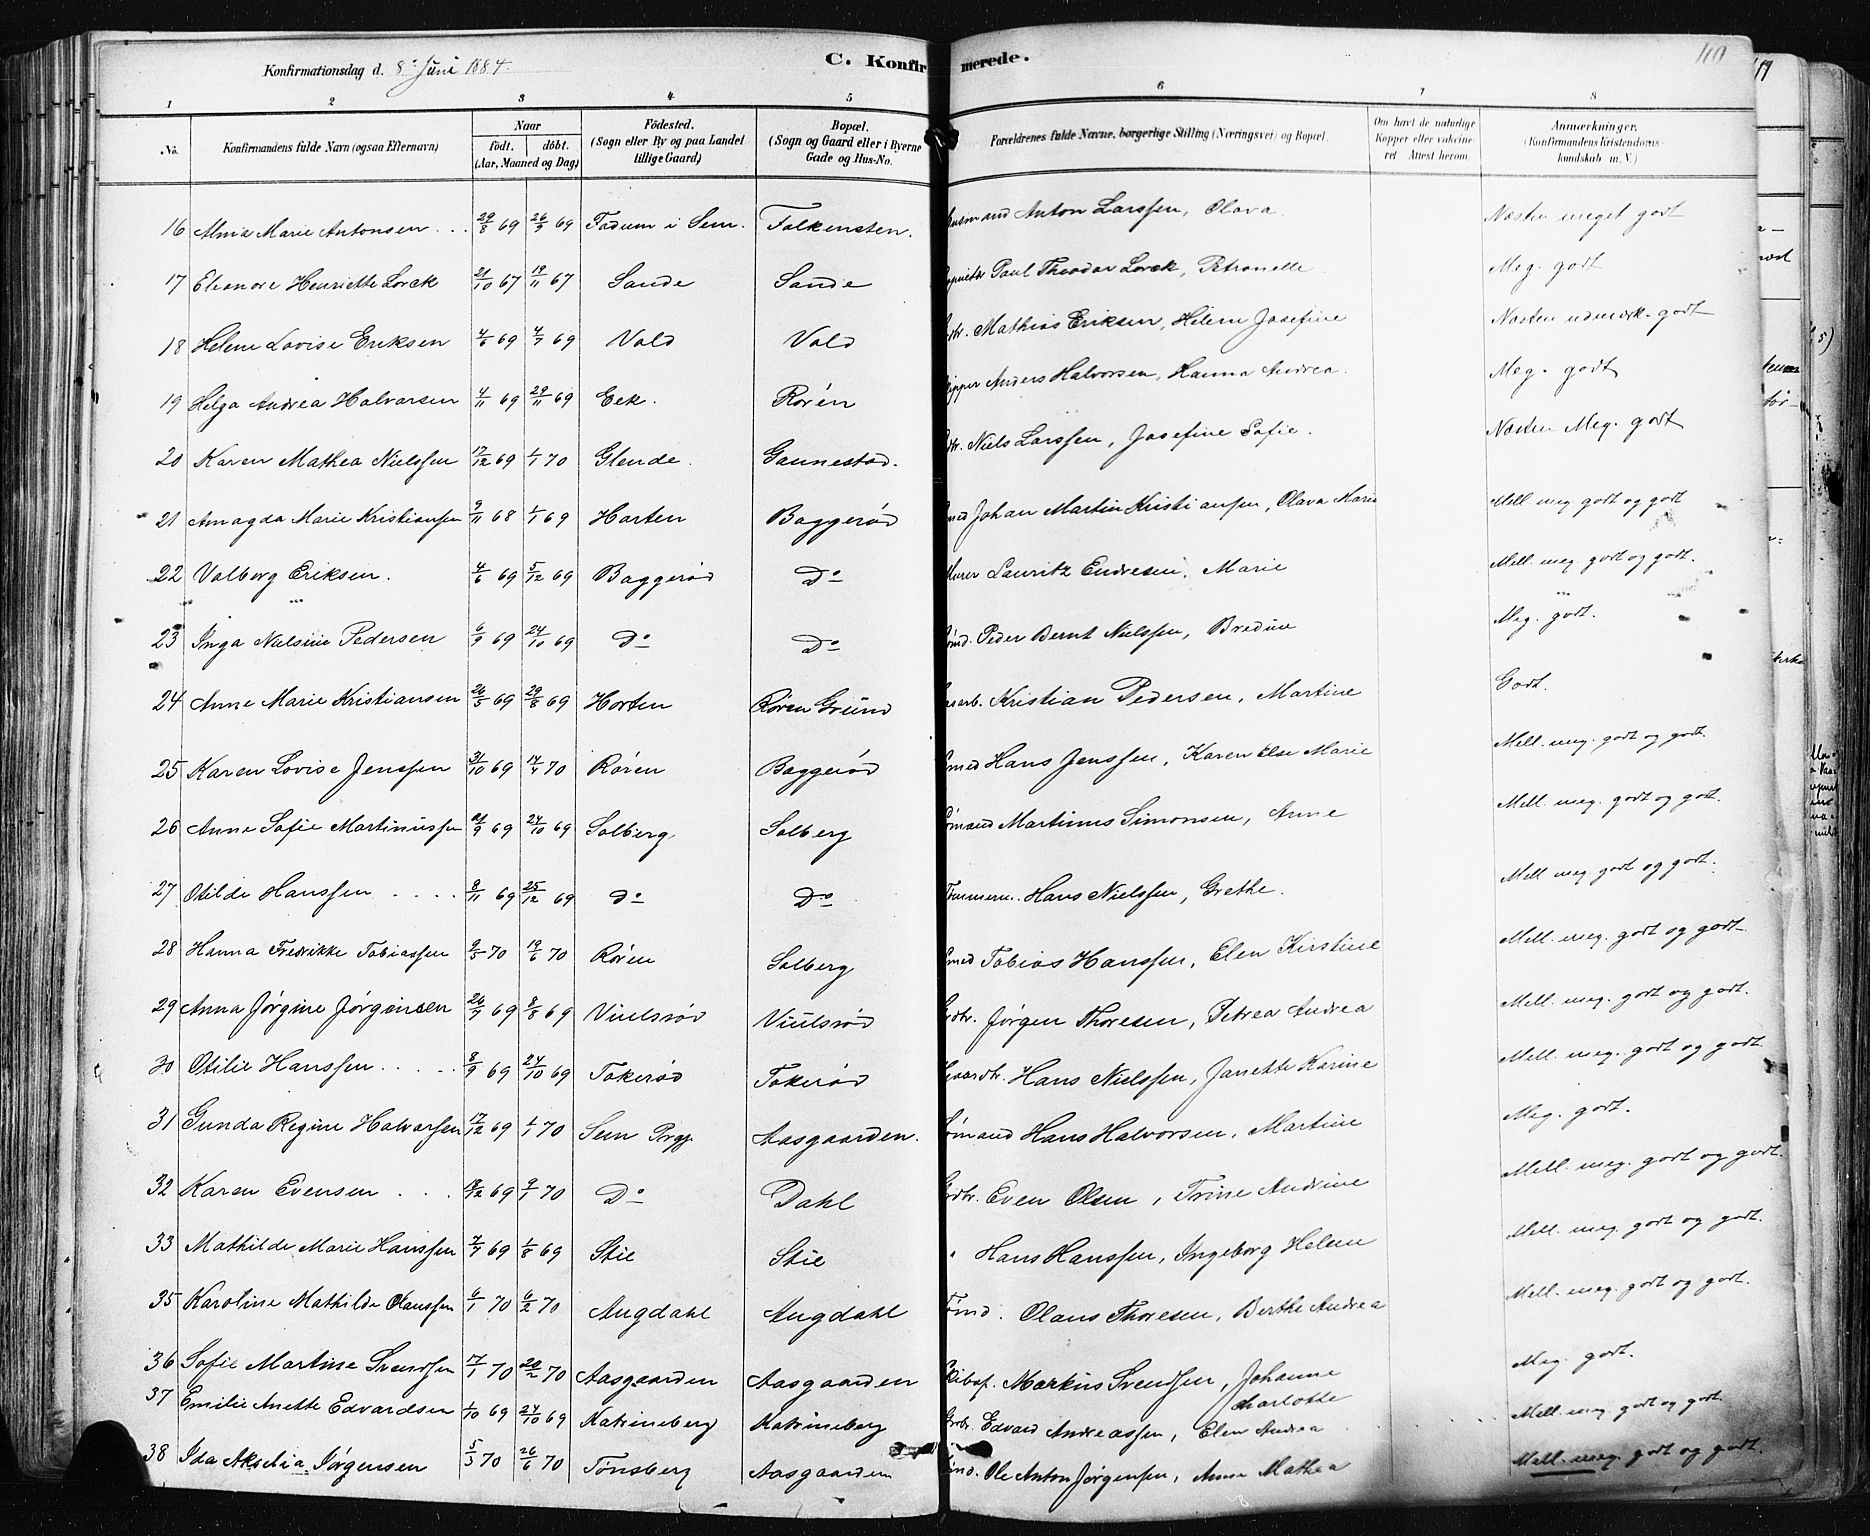 Konfirmationsdag d. 8de Juni 1884. C. Konfirmerede. 110
1 2 3 4 5 6 7 8
No. Konfirmandens fulde Navn (ogsaa Efternavn) Naar født. døbt. (Aar, Maaned og Dag) Fødested. (Sogn eller By og paa Landet tillige Gaard) Bopæl. (Sogn og Gaard eller i Byerne Gade og Hus-No. Forældrenes fulde Navne, borgerlige Stilling (Næringsvei) og Bopæl. Om havt de naturlige Kopper eller vakcineret Attest herom. Anmærkninger. (Konfirmandens Kristendomskundskab m. V.)
16 Alma Marie Antonsen 29/8 69 26/9 69 Fadum i Sem. Falkensten. Husmand Anton Larssen, Olava Næsten meget godt
17 Eleonore Henriette Lorck 21/10 67 19/11 67 Sande Sande Paul Theodor Lorck, Petronelle Meg. godt
18 Helene Lovise Eriksen 4/6 69 4/7 69 Vold Vold Mathias Eriksen, Helene Josefine Næsten udmærk. godt
19 Helga Andrea Halvorsen 4/11 69 29/11 69 Eek. Røren Anders Halvorsen, Hanna Andrea. Meg. godt
20 Karen Mathea Nielssen 17/12 69 1/1 70 Glende. Gannestad. Niels Larssen, Josefine Sofie. Næsten Meg. godt
21 Amagda Marie Kristianssen 9/11 68 1/1 69 Horten Baggerød Smed Johan Martin Kristianssen, Olava Marie Mell meg. godt og godt
22 Valborg Eriksen. 4/6 69 5/12 69 Baggerød Do Murer Lauritz Endresen, Marie Mell. meg. godt og godt.
23 Inga Nielsine Pedersen 6/9 69 24/10 69 Do Do Peder Bernt Nielssen, Bredine Meg. godt.
24 Anne Marie Kristiansen 26/5 69 29/8 69 Horten Røren Grund Kristian Pedersen, Martine Godt.
25 Karen Lovise Jenssen 31/10 69 17/4 70 Røren Baggerød Smed Hans Jenssen, Karen Else Marie Mell. meg. godt og godt.
26 Anne Sofie Martinussen 21/9 69 24/10 69 Solberg Solberg Sømand Martinus Simonsen, Anne Mell. meg. godt og godt.
27 Otilde Hanssen 8/11 69 25/12 69 Do Do Tømmerm. Hans Nielssen, Grethe. Mell meg. godt og godt.
28 Hanna Fredrikke Tobiassen 9/5 70 19/6 70 Røren Solberg Smed Tobias Hanssen, Elen Kirstine Mell. meg. godt og godt
29 Anna Jørgine Jørgensen 26/7 69 8/8 69 Viulsrød Viulsrød Grdbr. Jørgen Thoresen, Petrea Andrea Mell. meg. godt og godt.
30 Otilie Hanssen 8/9 69 24/10 69 Tokerød Tokerød Gaardbr. Hans Nielssen, Janette Karine Mell. meg. godt og godt.
31 Gunda Regine Halvorsen 17/12 69 1/1 70 Sem Prgj. Aasgaarden. Sømand Hans Halvorsen, Martine Meg. godt.
32 Karen Evensen 18/12 69 9/1 70 Do Dahl Grdbr. Even Olsen, Trine Andrine Mell. meg. godt og godt.
33 Mathilde Marie Hanssen 7/7 69 1/8 69 Stie Stie " Hans Hanssen, Ingeborg Helene Mell. meg. godt og godt.
35 Karoline Mathilde Olaussen 6/1 70 6/2 70 Augdahl Augdahl Tømd. Olaus Thoresen, Berthe Andrea Mell. meg. godt og godt.
36 Sofie Martine Svendsen 17/1 70 20/2 70 Aasgaarden Aasgaarden Skibsf. Markus Svendsen, Johanne Charlotte Meg. godt.
37 Emilie Anette Edvardsen 1/10 69 24/10 69 Katrineberg Katrineberg Grdbr. Edvard Andreassen, Elen Andrea Mell. meg. godt og godt.
38 Ida Akselia Jørgensen 5/3 70 26/6 70 Tønsberg Aasgaarden Ole Anton Jørgensen, Anne Mathea Mell. meg. godt og godt.